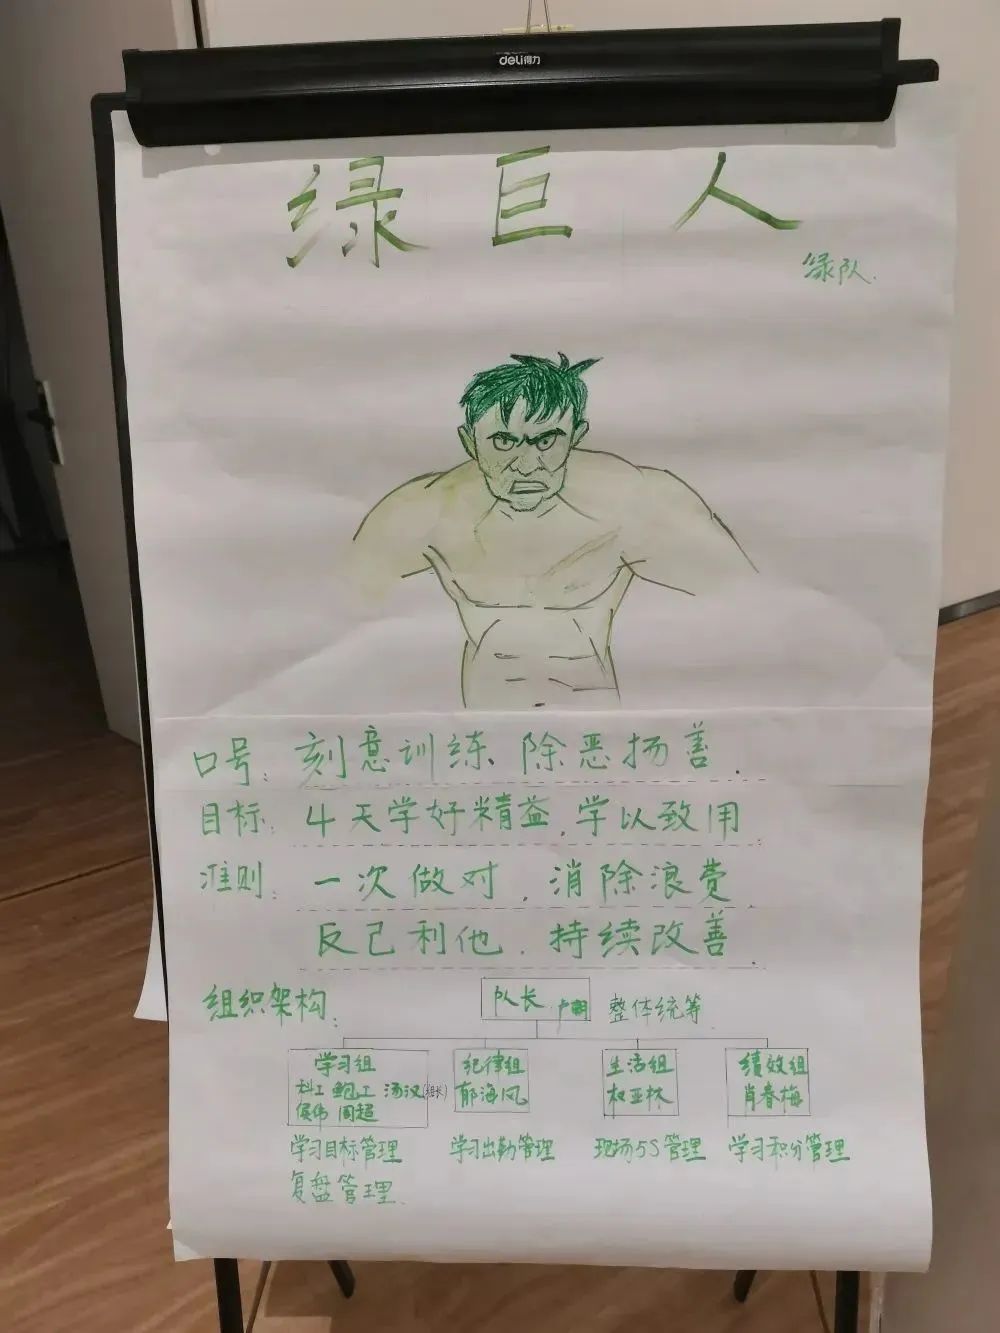 deli得力
绿巨人
绿队.
口号: 刻意训练 除恶扬善.
目标: 4天学好精益,学以致用.
准则: 一次做对,消除浪费.
反己利他.持续改善.
组织架构: 队长 整体统筹
学习组 纪律组 生活组 绩效组
科工 鲍工 汤汉(组长) 郁海凤 权亚林 肖春梅
侯伟 周超
学习目标管理 学习出勤管理 现场5S管理 学习积分管理
复盘管理.